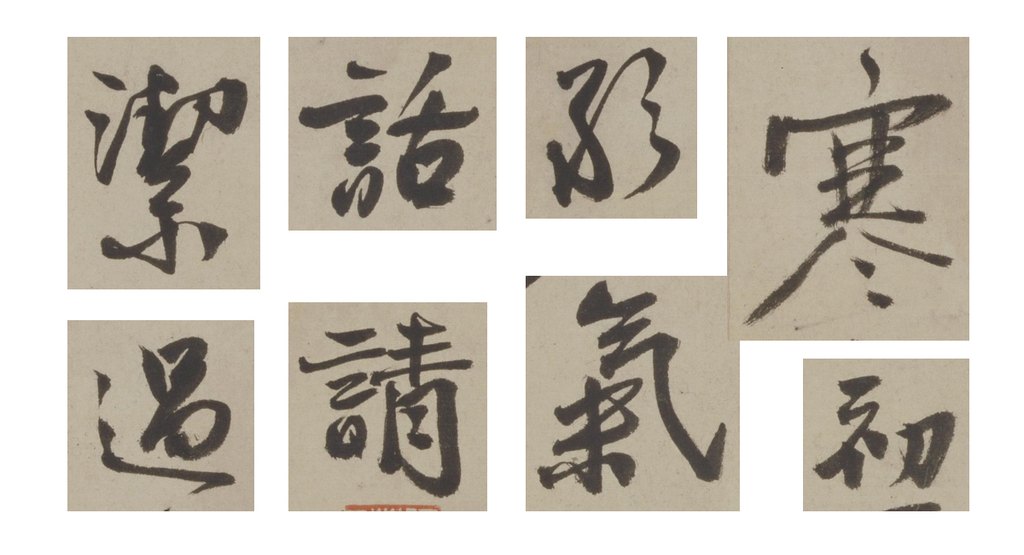 寒初
氣
話請
潔過